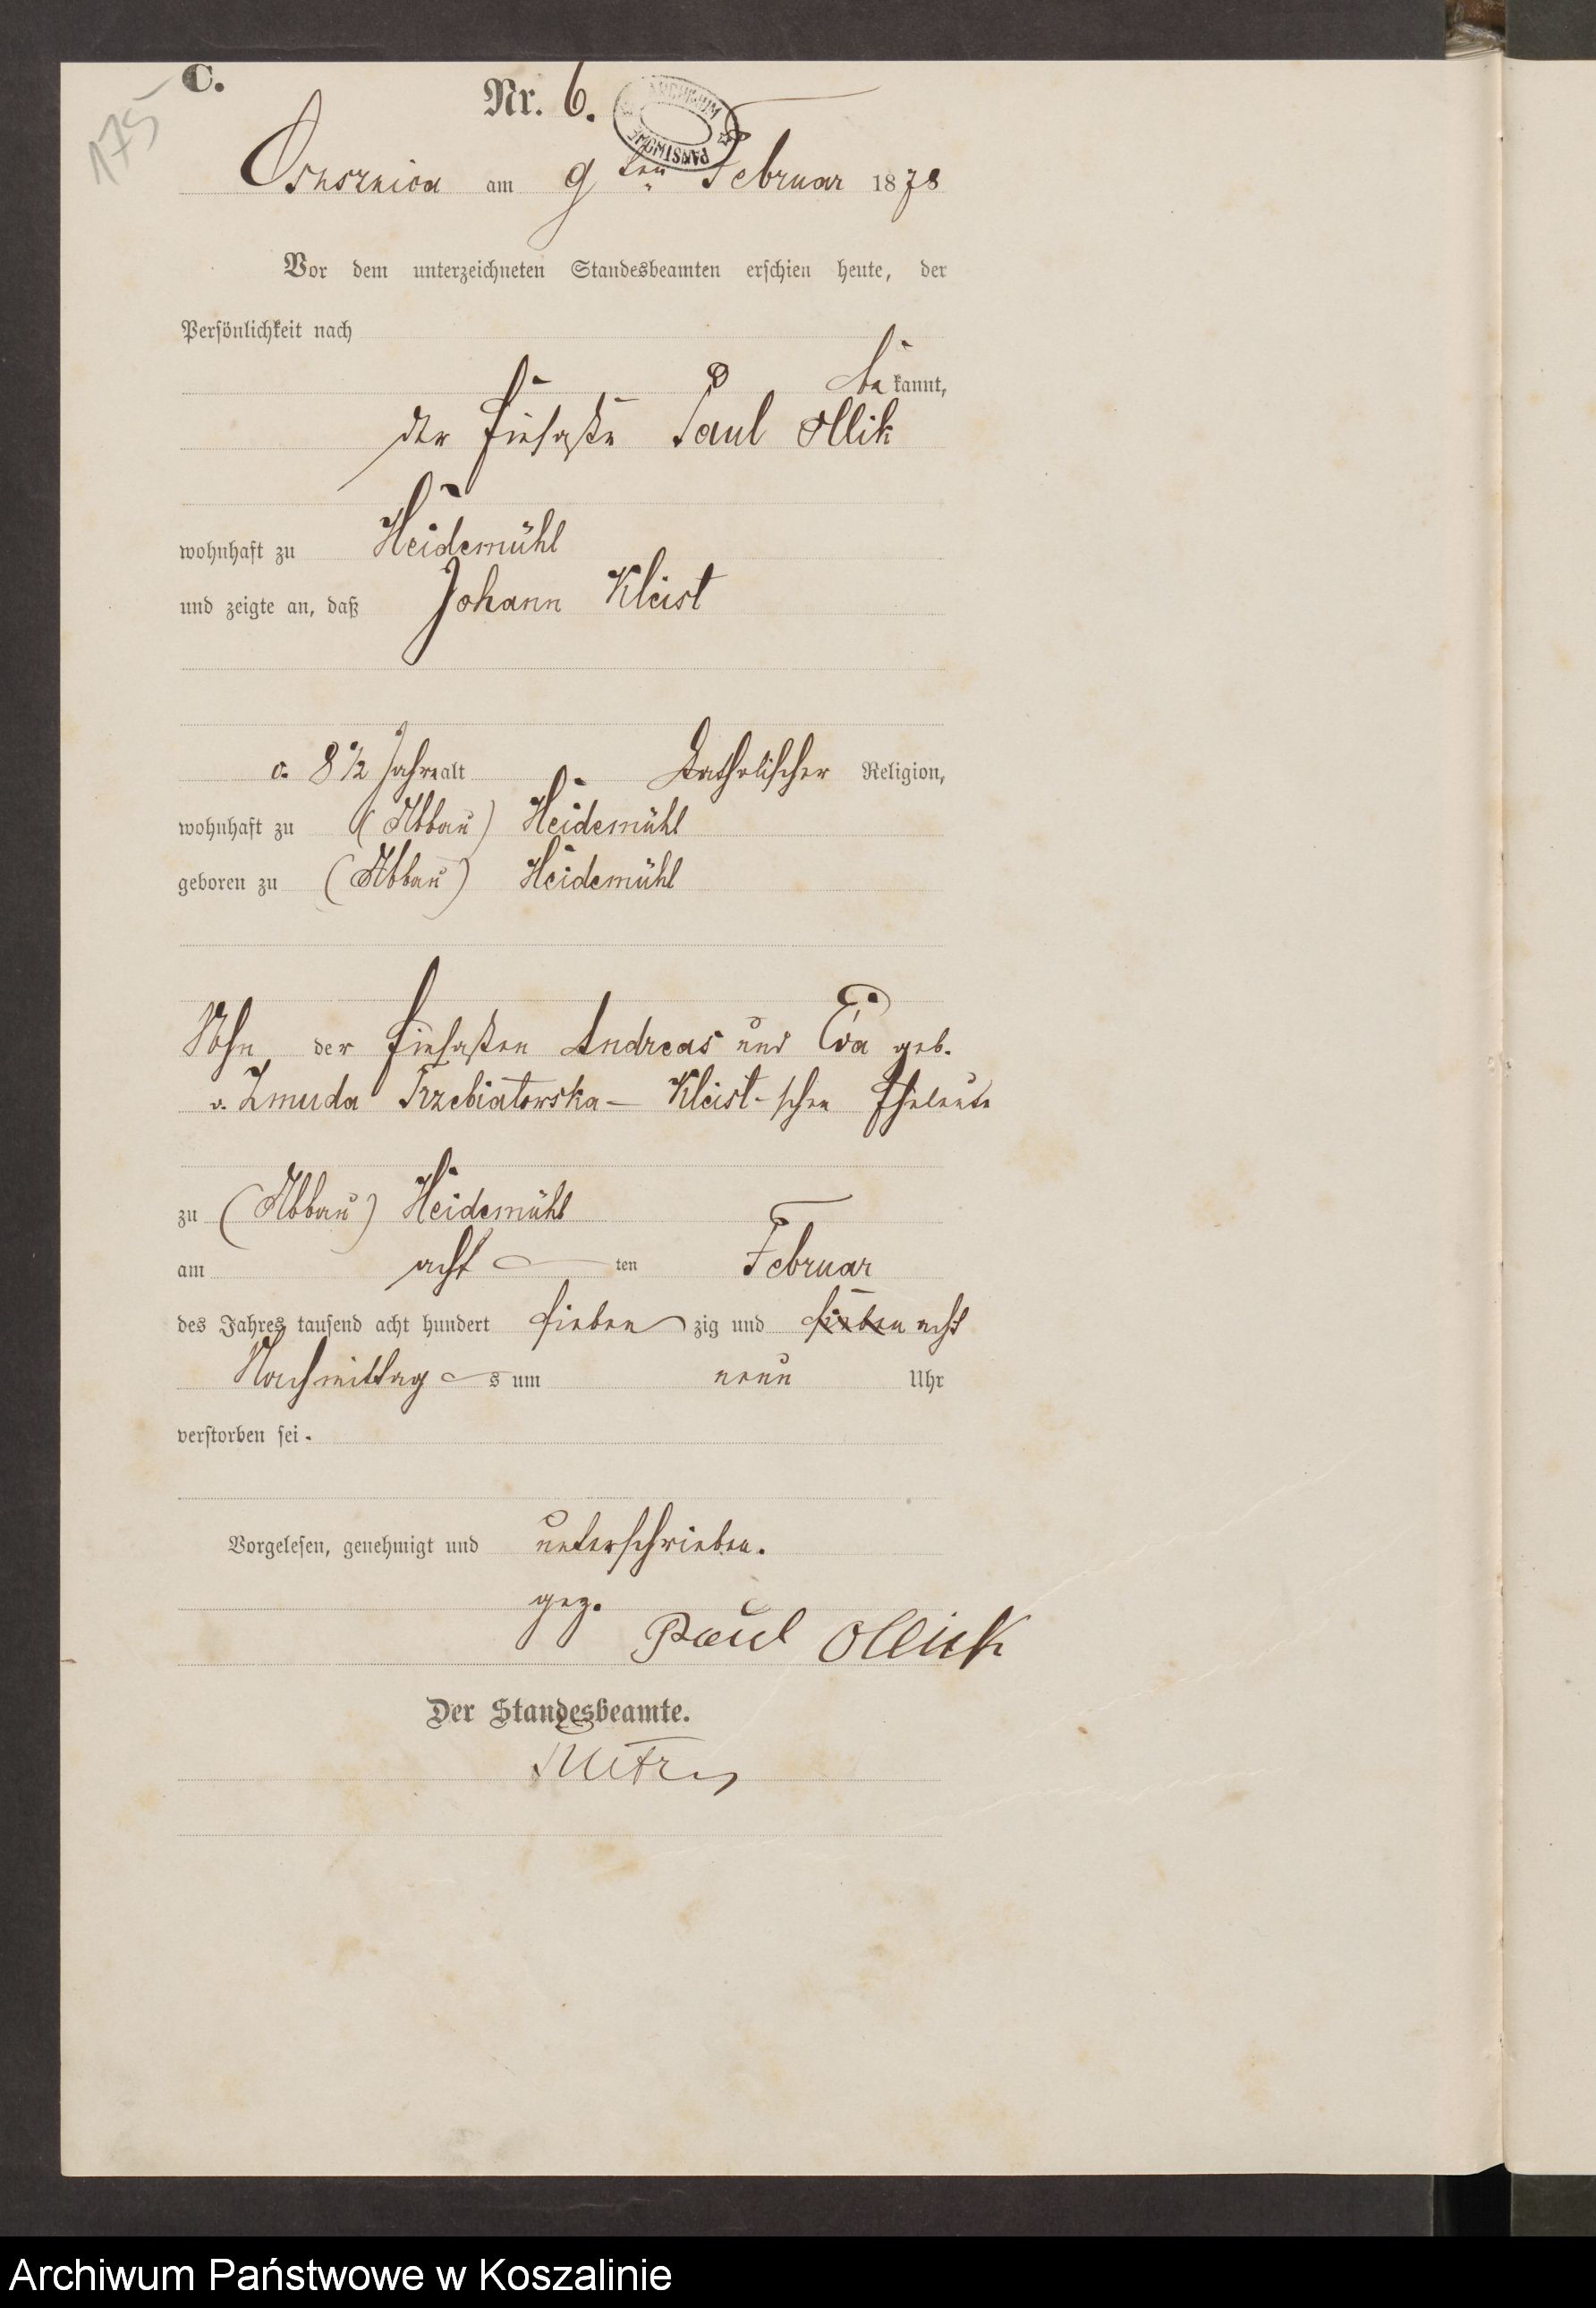 C.
175
Nr. 6.
ARCHIWUM PAŃSTWOWE
am 9ten Februar 1878
Vor dem unterzeichneten Standesbeamten erschien heute, der
Persönlichkeit nach
bekannt,
der Einsaße Paul Ollik
wohnhaft zu Heidemühl
und zeigte an, daß Johann Kleist
8 1/2 Jahre alt katholischer Religion,
wohnhaft zu (Abbau) Heidemühl
geboren zu (Abbau) Heidemühl
Sohn der Einsaßen Andreas und Eva geb.
v. Zmuda Trzebiatowska - Kleist-schen Eheleute
zu (Abbau) Heidemühl
am acht ten Februar
des Jahres tausend acht hundert sieben zig und sieben acht
Nachmittag s um neun Uhr
verstorben sei.
Vorgelesen, genehmigt und unterschrieben.
gez.
Paul Ollick
Der Standesbeamte.
Archiwum Państwowe w Koszalinie